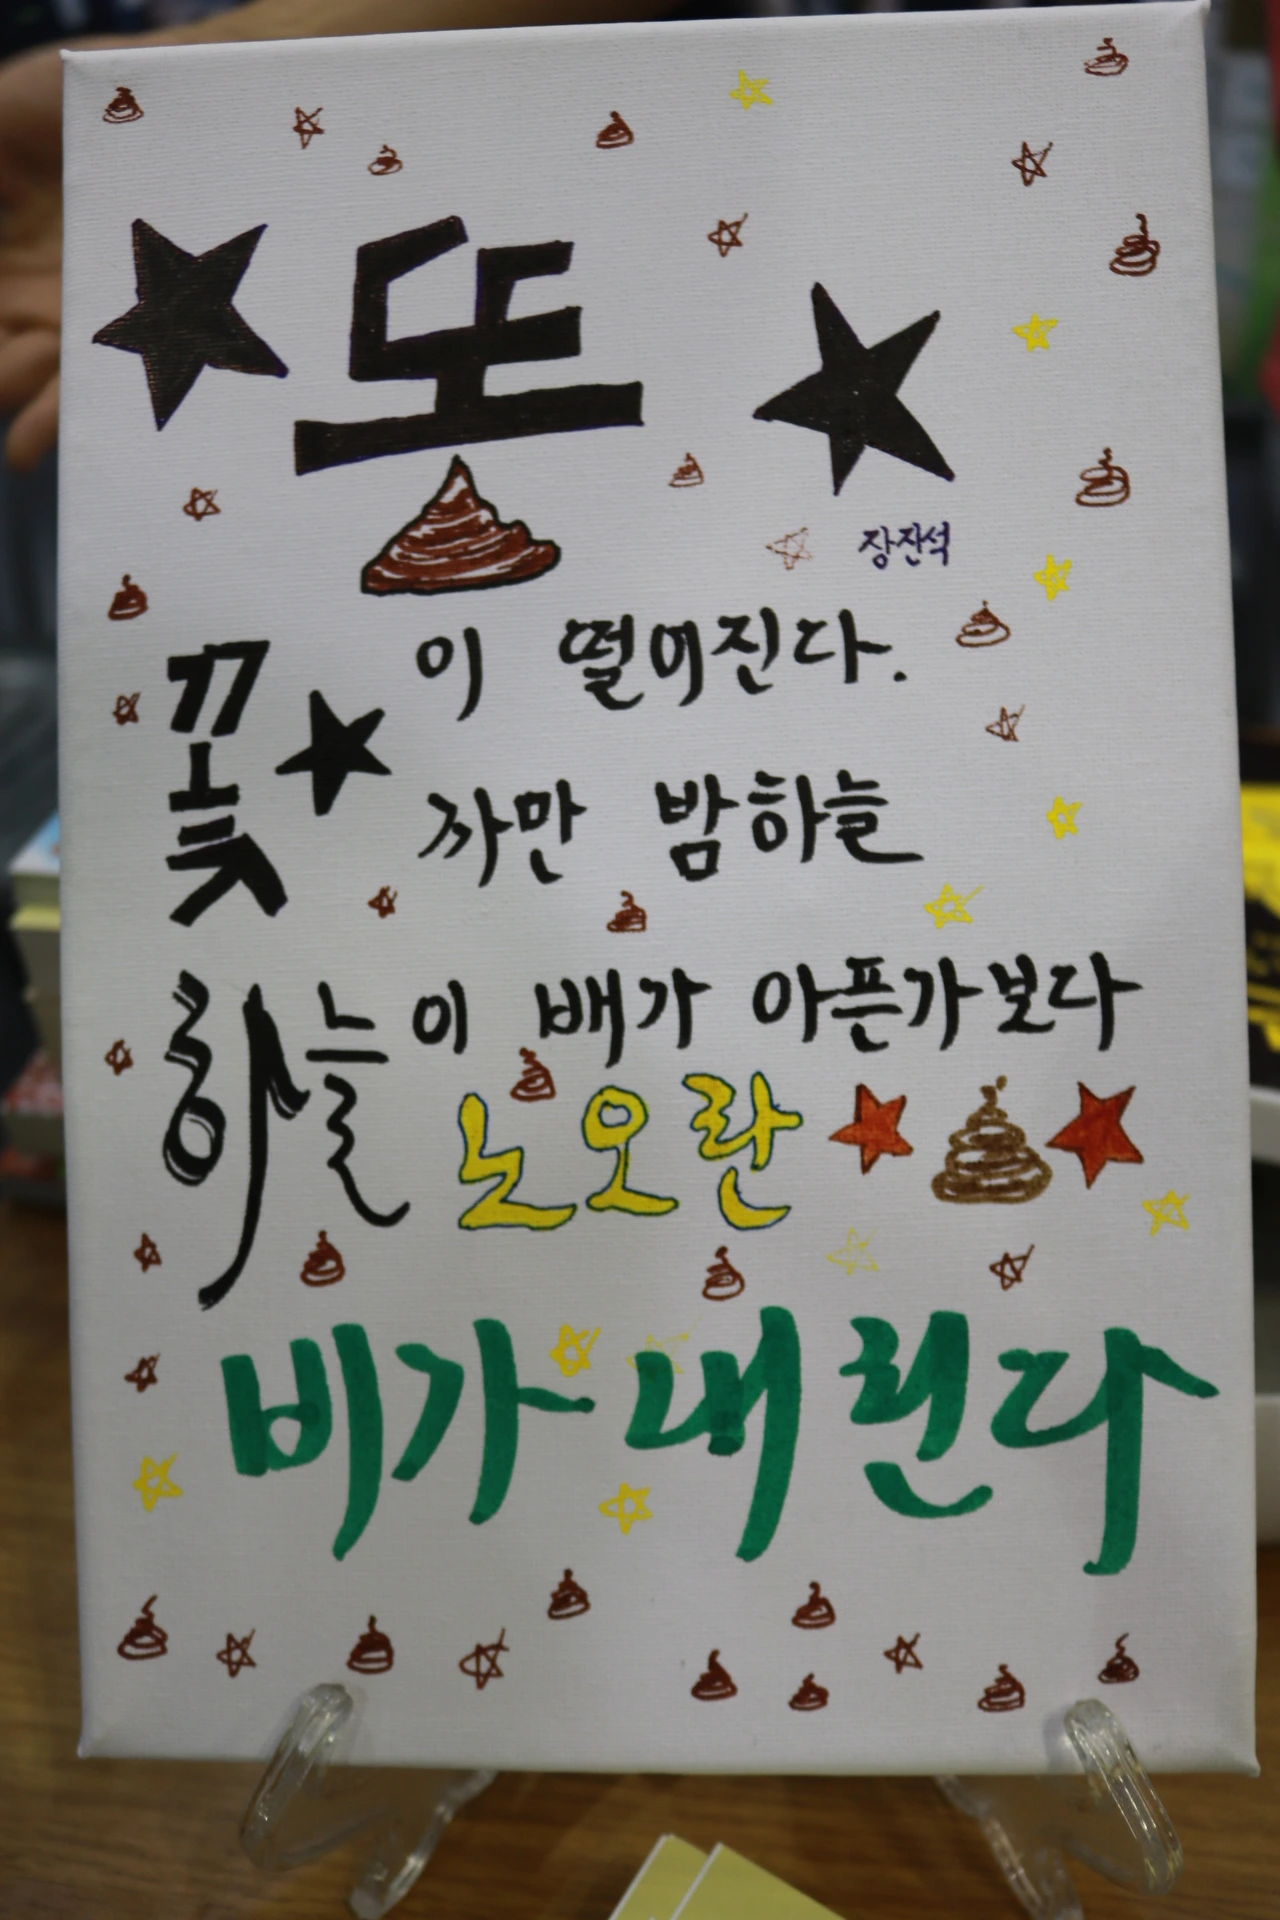 또
장잔석
꽃 이 떨어진다.
까만 밤하늘
하늘이 배가 아픈가보다
노오란
비가 내린다